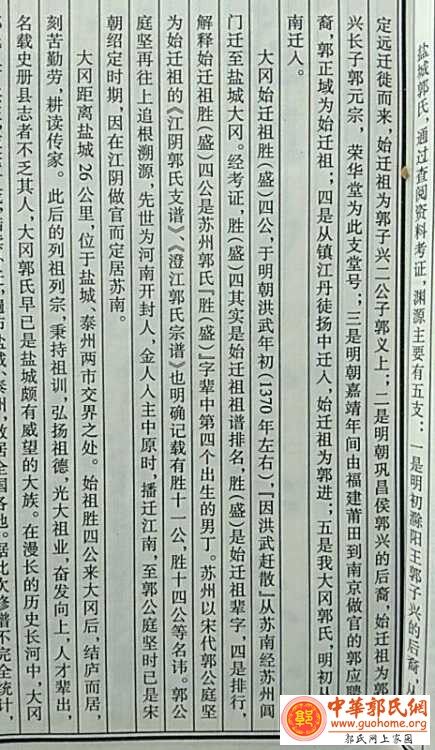 盐城郭氏，通过查阅资料考证，渊源主要有五支：一是明初滁阳王郭子兴的后裔，从
定远迁徙而来，始迁祖为郭子兴二公子郭义上；二是明朝巩昌侯郭兴的后裔，始迁祖为郭
兴长子郭元宗，荣华堂为此支堂号；三是明朝嘉靖年间由福建莆田到南京做官的郭应聘
裔，郭正域为始迁祖；四是从镇江丹徒扬中迁人，始迁祖为郭进；五是我大冈郭氏，明初从
南迁人。
大冈始迁祖胜（盛）四公，于明朝洪武年初（1370年左右），『因洪武赶散』从苏南经苏州阊
门迁至盐城大冈。经考证，胜（盛）四其实是始迁祖谱排名，胜（盛）是始迁祖辈字，四是排行，
解释始迁祖胜（盛）四公是苏州郭氏『胜（盛）』字辈中第四个出生的男丁。苏州以宋代郭公庭坚
为始迁祖的《江阴郭氏支谱》、《澄江郭氏宗谱》也明确记载有胜十一公，胜十四公等名讳。郭公
庭坚再往上追根溯源，先世为河南开封人，金人人主中原时，播迁江南，至郭公庭坚时已是宋
朝绍定时期，因在江阴做官而定居苏南。
大冈距离盐城26公里，位于盐城、泰州两市交界之处。始祖胜四公来大冈后，结庐而居
刻苦勤劳，耕读传家。此后的列祖列宗，秉持祖训，弘扬祖德，光大祖业，奋发向上，人才辈出，
名载史册县志者不乏其人，大冈郭氏早已是盐城颇有威望的大族。在漫长的历史长河中，大冈
盐城、泰州，散居全国各地。据此次修谱不完全统计，
中華郭氏網
www.guohome.org
郭氏网上家园